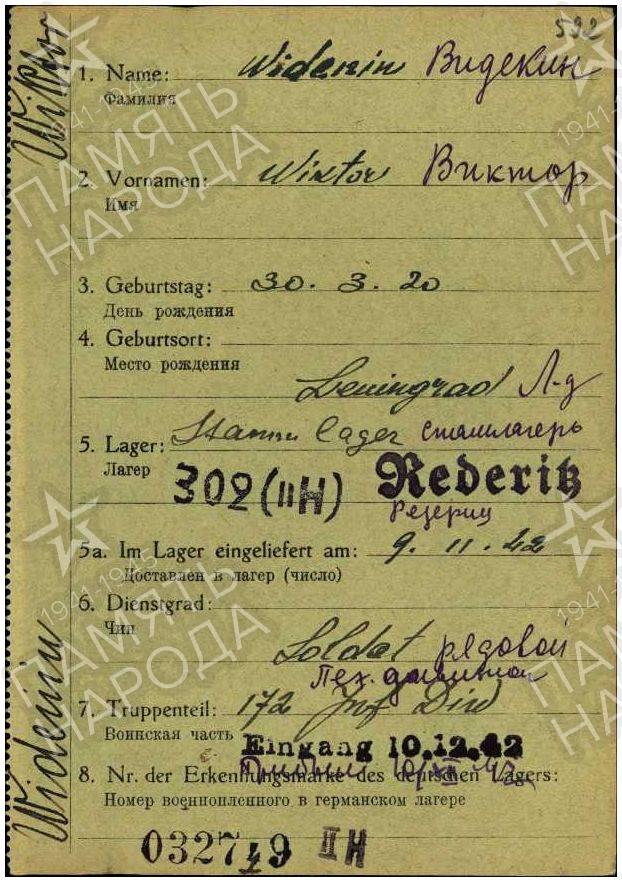 592
Wiktor
1. Name: Widenin Видекин
Фамилия
2. Vornamen: Wiktor Виктор
Имя
3. Geburtstag: 30. 3. 20
День рождения
4. Geburtsort:
Место рождения
Leningrad Л-д
5. Lager: Stammlager сталагерь
Лагер
302 (II H) Rederitz
Редериц
5a. Im Lager eingeliefert am: 9. 11. 42
Доставлен в лагер (число)
6. Dienstgrad:
Чин
Soldat рядовой
Пех. дивизион
7. Truppenteil: 172 Inf Div
Воинская часть
Eingang 10.12.42
8. Nr. der Erkennungsmarke des deutschen Lagers:
Прибыл 10/XII 42
Номер военнопленного в германском лагере
032719 II H
Widenin
ПАМЯТЬ
НАРОДА
1941-1945